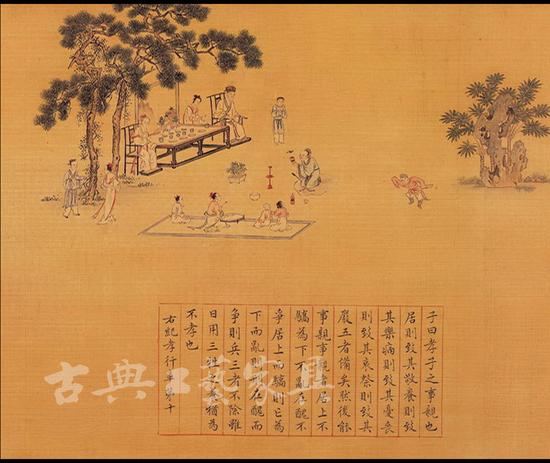 子曰孝子之事親也
居則致其敬養則致
其樂病則致其憂喪
則致其哀祭則致其
嚴五者備矣然後能
事親事親者居上不
驕為下不亂在醜不
爭居上而驕則亡為
下而亂則刑在醜而
爭則兵三者不除雖
日用三牲之養猶為
不孝也
右紀孝行章第十
古典工艺家具